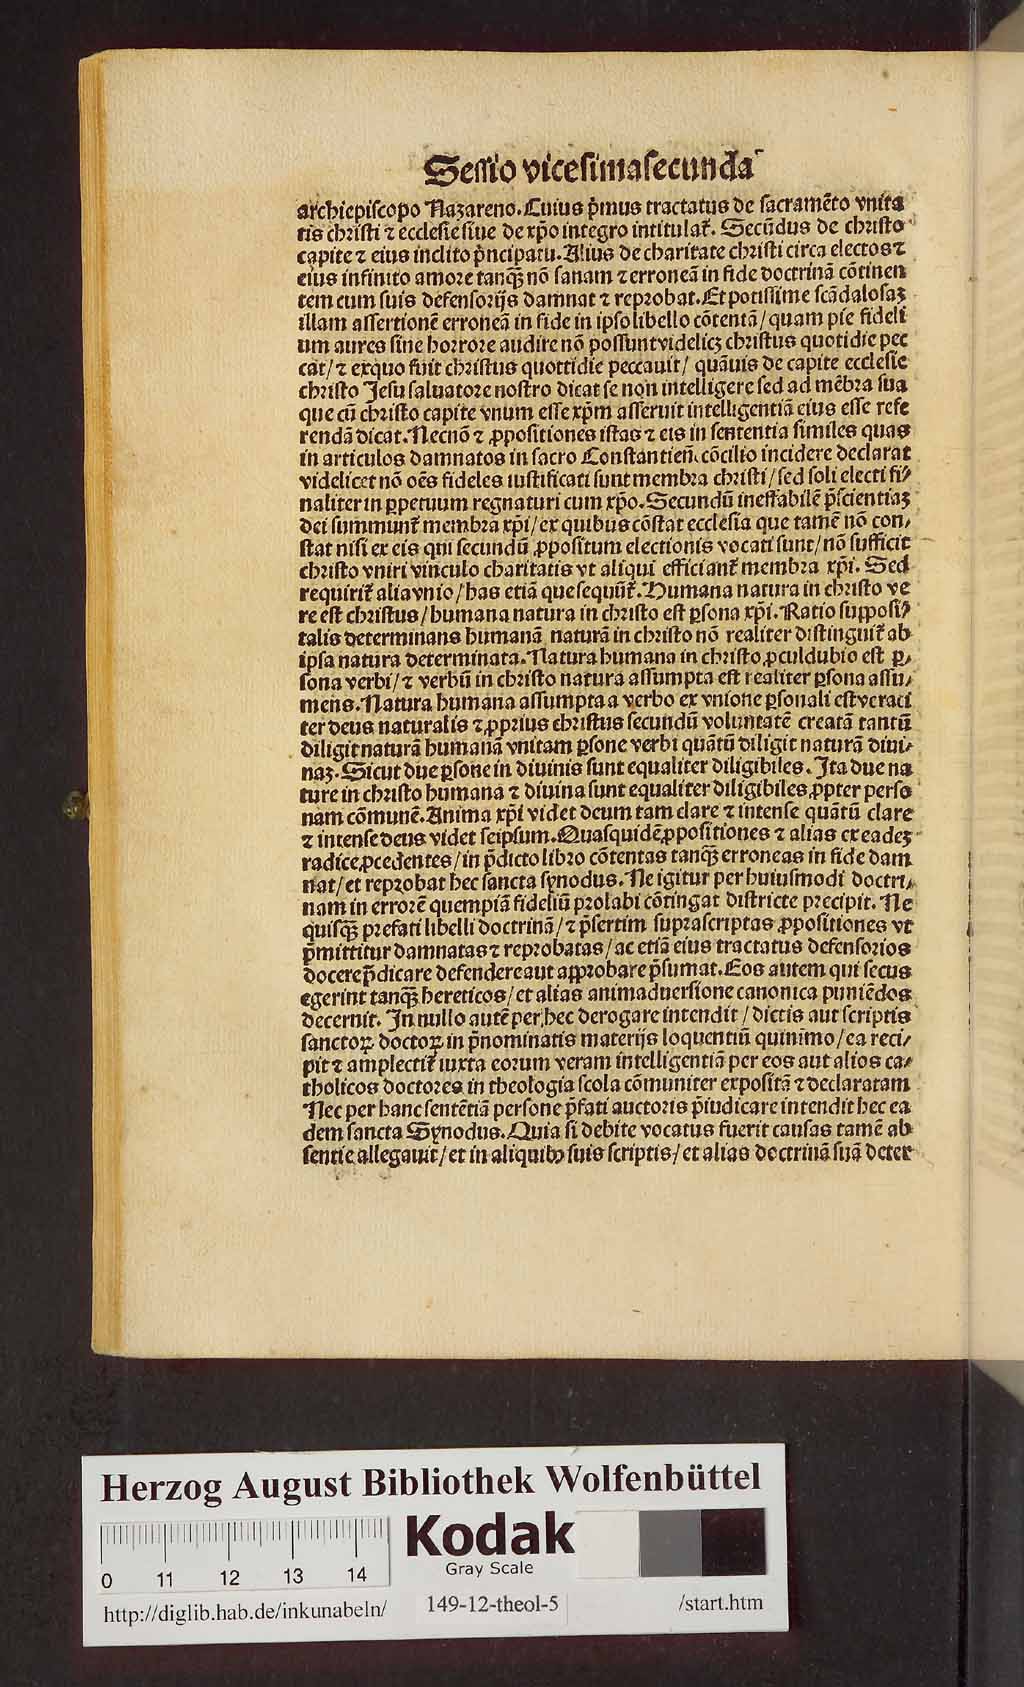 Sessio vicesimasecunda
archiepiscopo Nazareno. Cuius p̄mus tractatus de sacramēto vnita
tis christi ⁊ ecclesie siue de xp̄o integro intitulat᷑. Secūdus de christo
capite ⁊ eius inclito p̄ncipatu. Alius de charitate christi circa electos ⁊
eius infinito amore tanqꝫ nō sanam ⁊ erroneā in fide doctrinā cōtinen
tem cum suis defensorijs damnat ⁊ reprobat. Et potissime scādalosaꝫ
illam assertionē erroneā in fide in ipso libello cōtentā / quam pie fideli
um aures sine horrore audire nō possunt videlicꝫ christus quotidie pec
cat / ⁊ exquo fuit christus quottidie peccauit / quāuis de capite ecclesie
christo Jesu saluatore nostro dicat se non intelligere sed ad mēbra sua
que cū christo capite vnum esse xp̄m asseruit intelligentiā eius esse refe
rendā dicat. Necnō ⁊ ꝓpositiones istas ⁊ eis in sententia similes quas
in articulos damnatos in sacro Constantieñ. cōcilio incidere declarat
videlicet nō oēs fideles iustificati sunt membra christi / sed soli electi fi⸗
naliter in ꝑpetuum regnaturi cum xp̄o. Secundū ineffabilē p̄scientiaꝫ
dei summunt᷑ membra xp̄i / ex quibus cōstat ecclesia que tamē nō con⸗
stat nisi ex eis qui secundū ꝓpositum electionis vocati sunt / nō sufficit
christo vniri vinculo charitatis vt aliqui efficiant᷑ membra xp̄i. Sed
requirit᷑ alia vnio / has etiā que sequūt᷑. Humana natura in christo ve
re est christus / humana natura in christo est ꝑsona xp̄i. Ratio supposi⸗
talis determinans humanā naturā in christo nō realiter distinguit᷑ ab
ipsa natura determinata. Natura humana in christo ꝓculdubio est ꝑ⸗
sona verbi / ⁊ verbū in christo natura assumpta est realiter ꝑsona assu⸗
mens. Natura humana assumpta a verbo ex vnione ꝑsonali est veraci
ter deus naturalis ⁊ ꝓprius christus secundū voluntatē creatā tantū
diligit naturā humanā vnitam ꝑsone verbi quātū diligit naturā diui⸗
naꝫ. Sicut due ꝑsone in diuinis sunt equaliter diligibiles. Ita due na
ture in christo humana ⁊ diuina sunt equaliter diligibiles ꝓpter perso
nam cōmunē. Anima xp̄i videt deum tam clare ⁊ intense quātū clare
⁊ intense deus videt seipsum. Quasquidē ꝓpositiones ⁊ alias ex eadeꝫ
radice ꝓcedentes / in p̄dicto libro cōtentas tanqꝫ erroneas in fide dam
nat / et reprobat hec sancta synodus. Ne igitur per huiusmodi doctri⸗
nam in errorē quempiā fideliū prolabi cōtingat districte precipit. Ne
quisqꝫ prefati libelli doctrinā / ⁊ p̄sertim suprascriptas ꝓpositiones vt
p̄mittitur damnatas ⁊ reprobatas / ac etiā eius tractatus defensorios
docere p̄dicare defendere aut approbare p̄sumat. Eos autem qui secus
egerint tanqꝫ hereticos / et alias animaduersione canonica puniēdos
decernit. In nullo autē per hec derogare intendit / dictis aut scriptis
sanctoꝝ doctoꝝ in p̄nominatis materijs loquentiū quinimo / ea reci⸗
pit ⁊ amplectit᷑ iuxta eorum veram intelligentiā per eos aut alios ca⸗
tholicos doctores in theologia scola cōmuniter expositā ⁊ declaratam
Nec per hanc sentētiā persone p̄fati auctoris p̄iudicare intendit hec ea
dem sancta Synodus. Quia si debite vocatus fuerit causas tamē ab
sentie allegauit / et in aliquibꝫ suis scriptis / et alias doctrinā suā deter
Herzog August Bibliothek Wolfenbüttel
0 11 12 13 14
Kodak
Gray Scale
http://diglib.hab.de/inkunabeln/ 149-12-theol-5 /start.htm